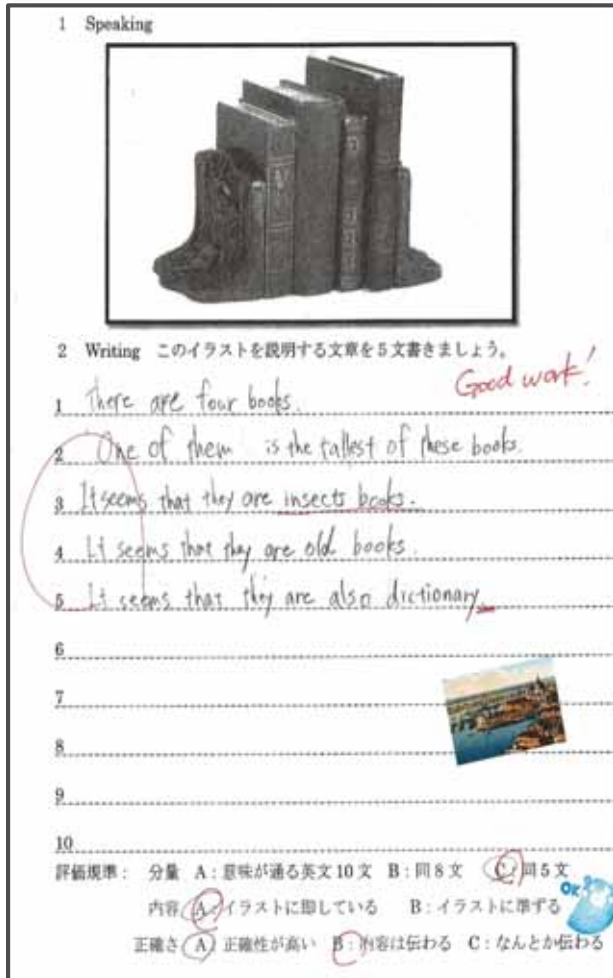 1 Speaking
2 Writing このイラストを説明する文章を5文書きましょう。
Good work!
1 There are four books.
2 One of them is the tallest of these books.
3 It seems that they are insects books.
4 It seems that they are old books.
5 It seems that they are also dictionary
6
7
8
9
10
評価規準： 分量 A：意味が通る英文10文 B：同8文 C：同5文
OK
内容 A：イラストに即している B：イラストに準ずる
正確さ A 正確性が高い B：内容は伝わる C：なんとか伝わる